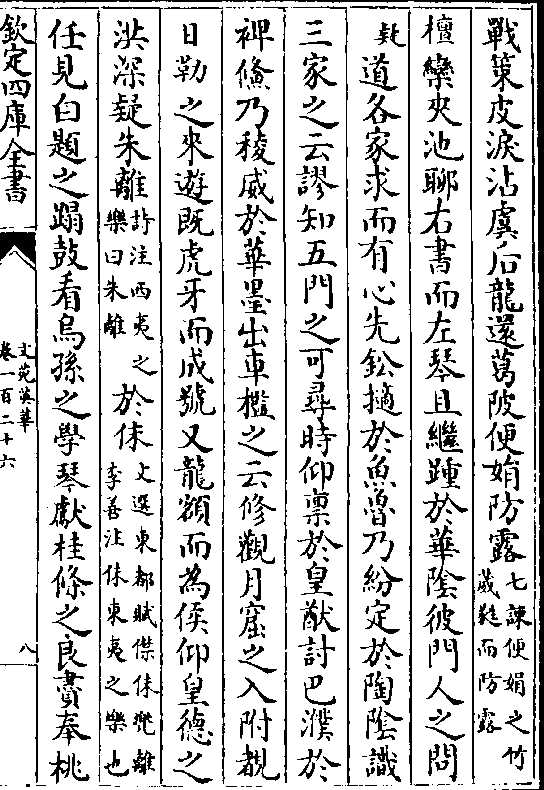 戰策皮淚沾虞后龍還葛陂便娟防露七諫便娟之竹葳蕤而防露
檀欒夾池聊右書而左琴且繼踵於華陰彼門人之問
疑道各家求而有心先鈆擿於魚魯乃紛定於陶陰識
三家之云謬知五門之可尋時仰禀於皇猷討巴濮於
裨
乃稜威於華墨出車檻之云修觀月窟之入附覩
日勒之來遊既虎牙而成號又龍額而為侯仰皇德之
洪深疑朱離詩注西夷之樂曰朱離於佅文選東都賦僸佅兜離李善注佅東夷之樂也
任見白題之蹋鼓看烏孫之學琴獻桂條之良賮奉桃
欽定四庫全書
文苑英華
卷一百二十六
八